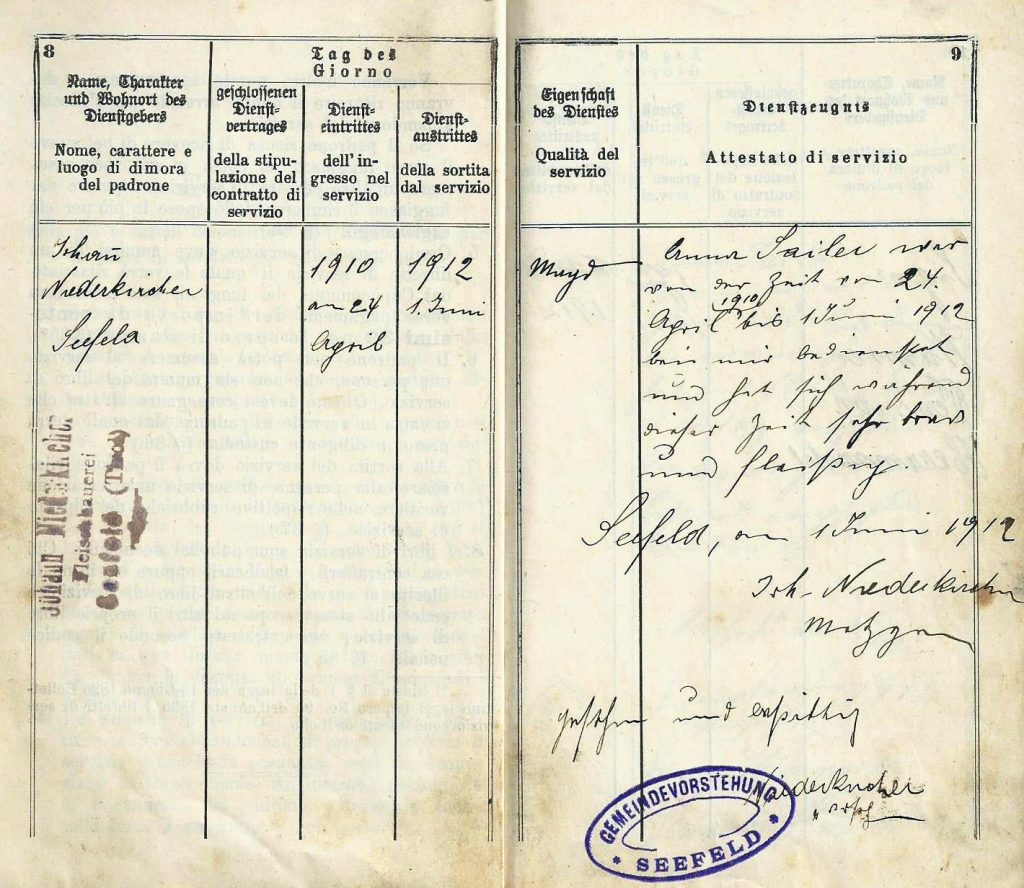 8
Name, Charakter
und Wohnort des
Dienstgebers
Nome, carattere e
luogo di dimora
del padrone
Tag des
Giorno
geschlossenen
Dienst-
vertrages
della stipu-
lazione del
contratto di
servizio
Dienst-
eintrittes
dell' in-
gresso nel
servizio
Dienst-
austrittes
della sortita
dal servizio
Johann
Niederkircher
Seefeld
1910
am 24
April
1912
1. Juni
Johann Niederkircher
Fleischhauerei
Seefeld (Tirol)
9
Eigenschaft
des Dienstes
Qualità del
servizio
Dienstzeugnis
Attestato di servizio
Magd
Anna Sailer war
von der Zeit vom 24.
1910
April bis 1 Juni 1912
bei mir bedienstet
und hat sich während
dieser Zeit sehr brav
und fleißig.
Seefeld, am 1 Juni 1912
Joh. Niederkircher
Metzger
gesehen und
Niederkircher
GEMEINDEVORSTEHUNG
* SEEFELD *